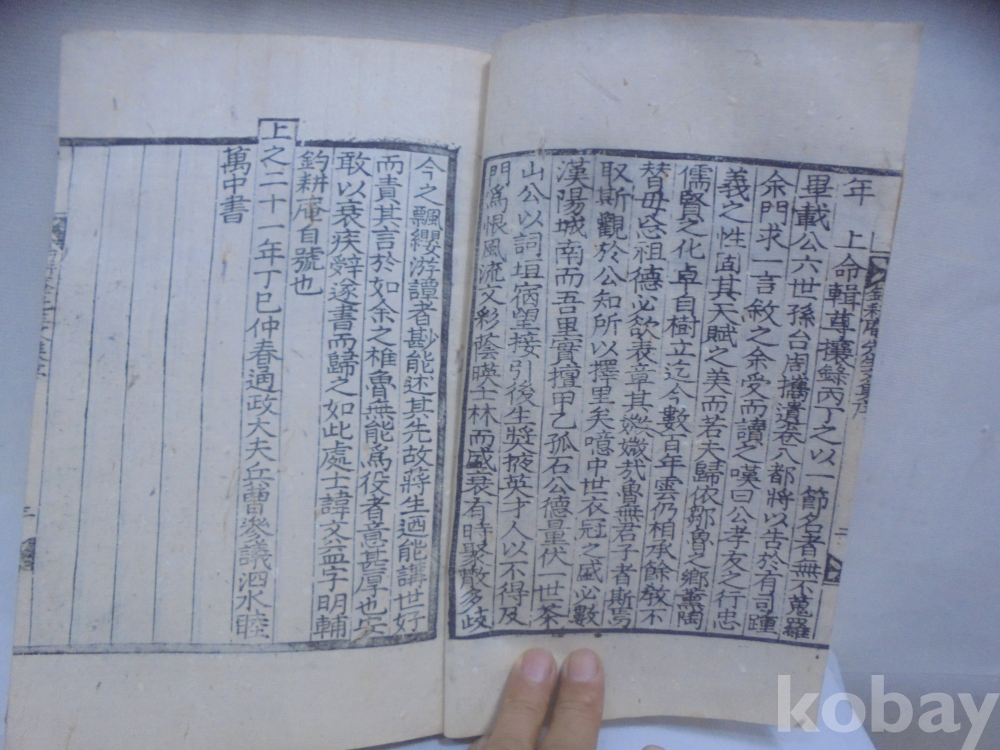 年 上命輯尊攘錄丙丁之以一節名者無不蒐羅
畢載公六世孫台周攜遺卷八都將以告於有司踵
余門求一言敘之余受而讀之嘆曰公孝友之行忠
義之性固其天賦之美而若夫歸依鄒魯之鄕薰陶
儒賢之化卓自樹立迄今數百年雲仍相承餘敎不
替毋忘祖德必欲表章其媺媺哉魯無君子者斯焉
取斯觀於公知所以擇里矣噫中世衣冠之盛必數
漢陽城南而吾里實擅甲乙孤石公德量伏一世茶
山公以詞垣宿望接引後生奬掖英才人以不得及
門爲恨風流文彩蔭暎士林而盛衰有時聚散多歧
今之飄纓游讀者尠能述其先故蔣生迺能講世好
而責其言於如余之椎魯無能爲役者意甚厚也安
敢以衰疾辭遂書而歸之如此處士諱文益字明輔
釣耕庵自號也
上之二十一年丁巳仲春通政大夫兵曹參議泗水睦
萬中書
kobay